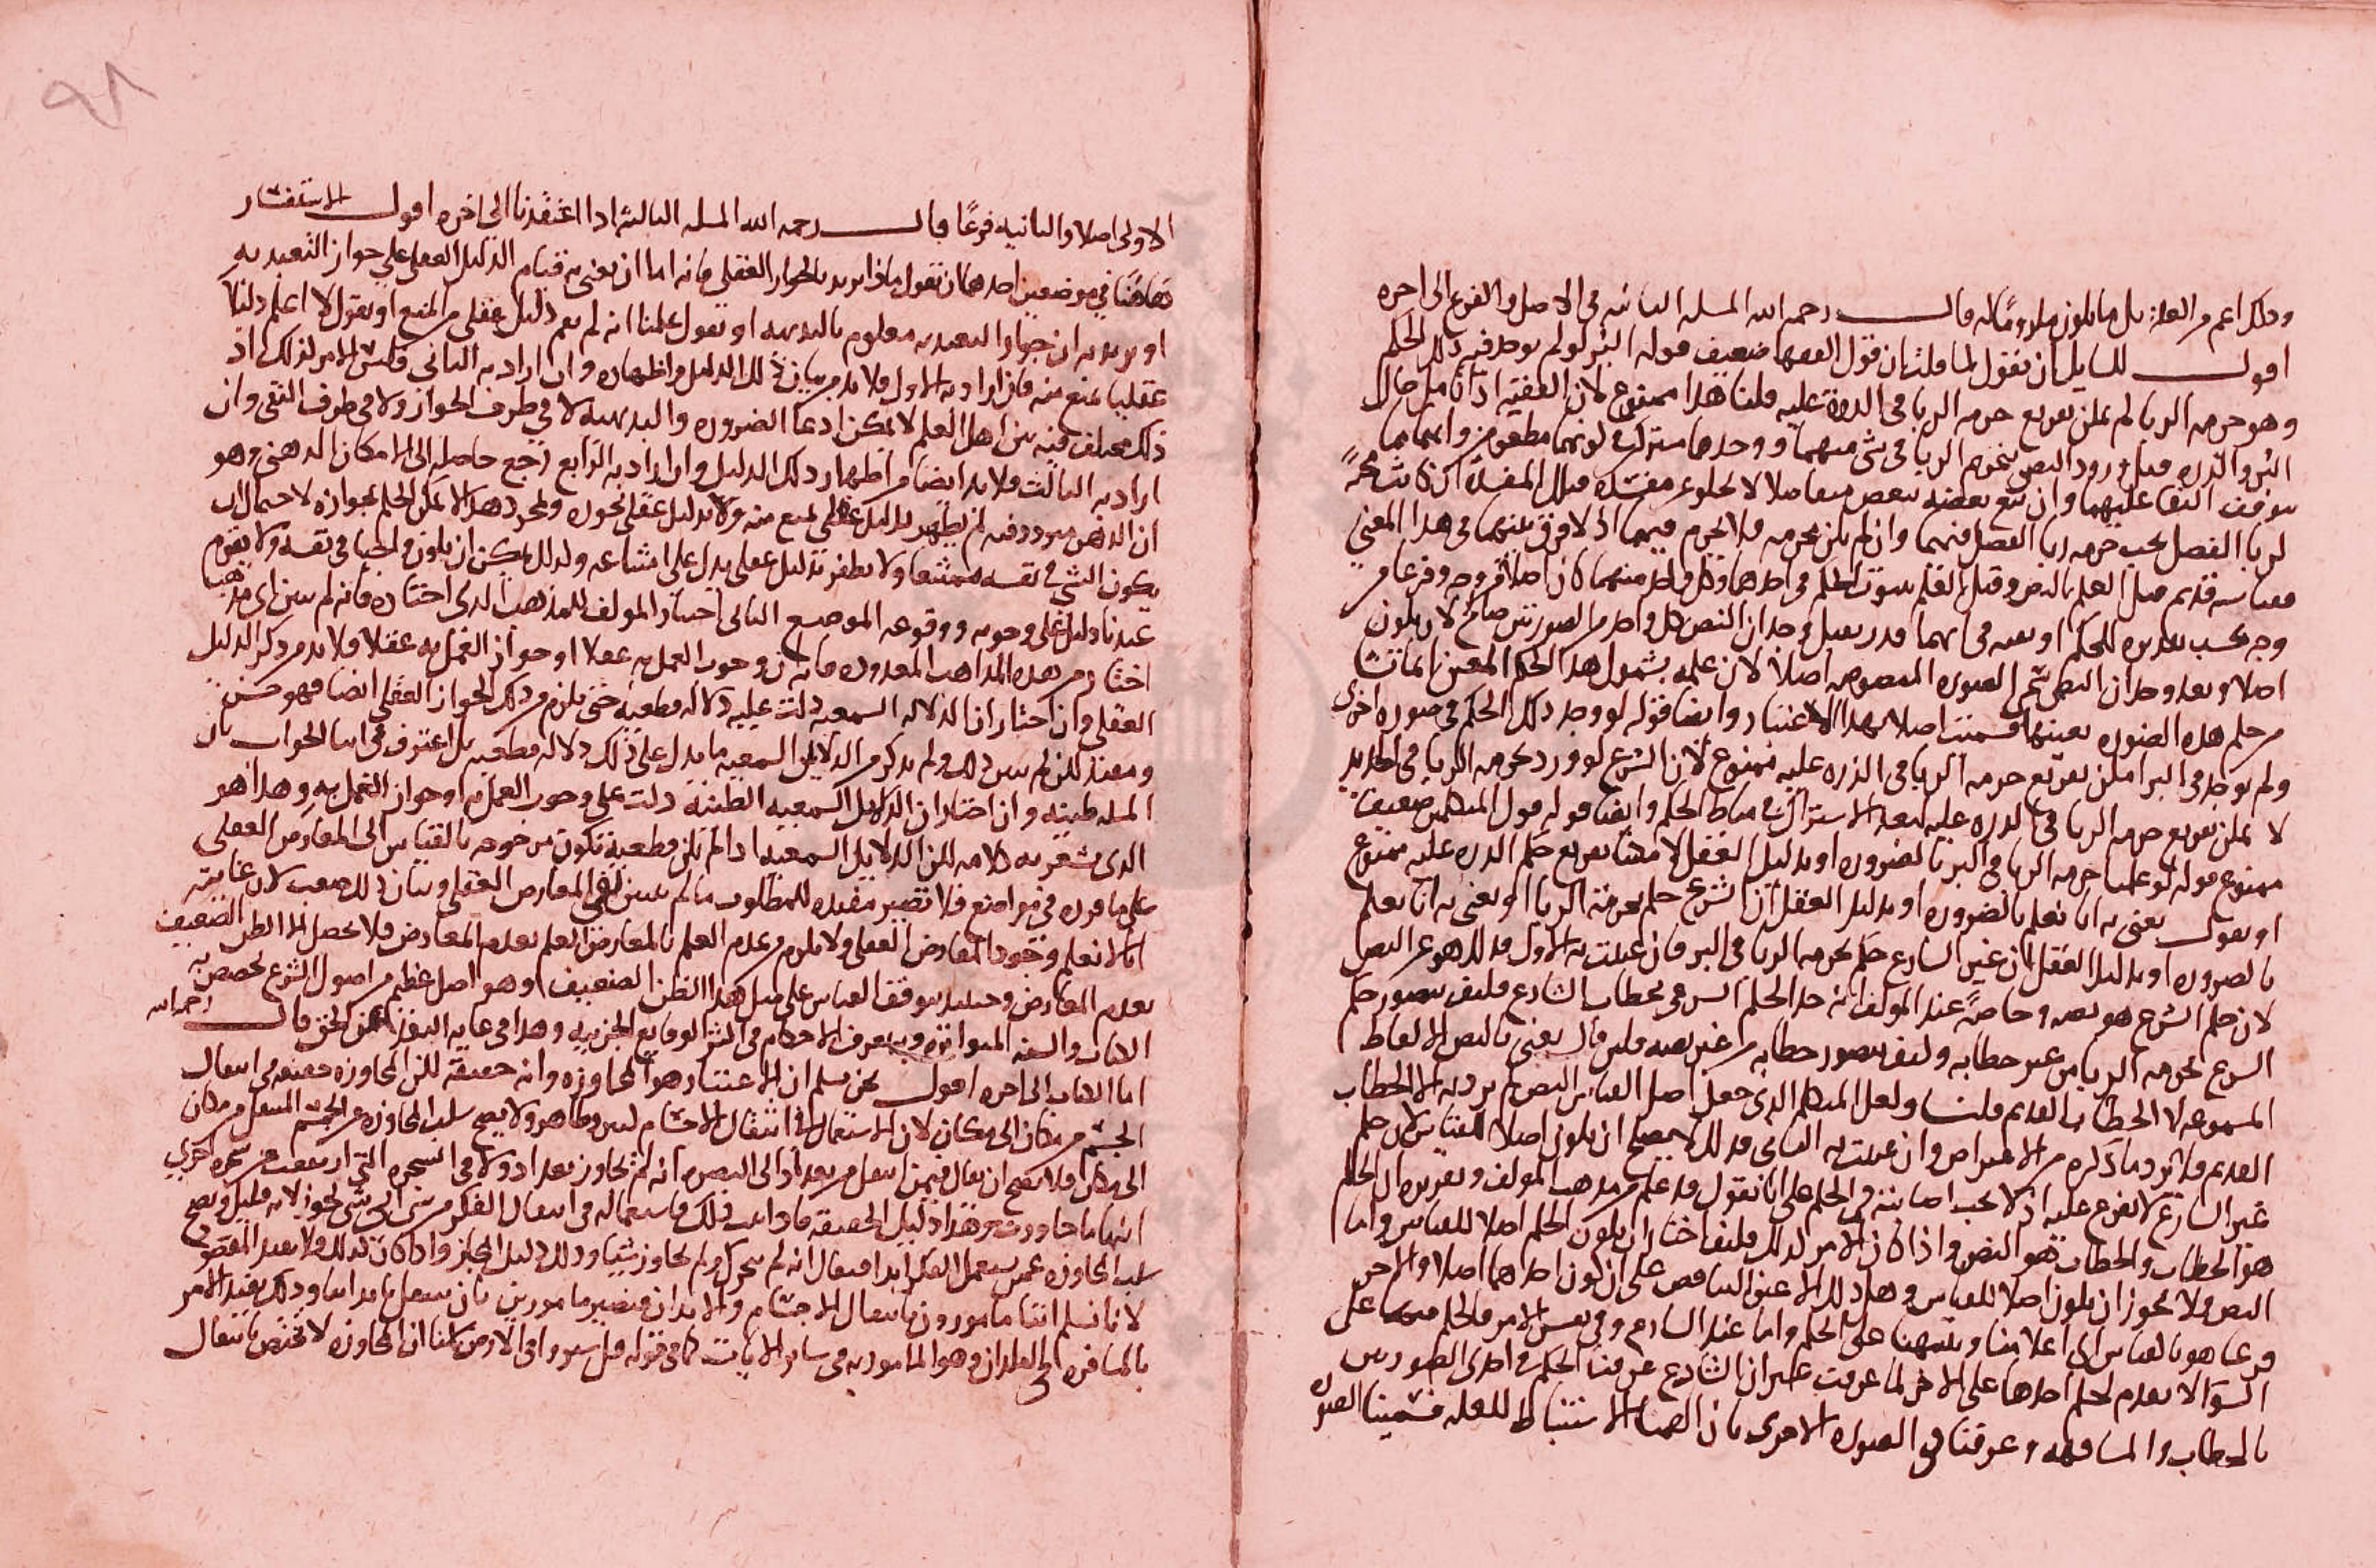 وذلك اعم من العلة بل ما يكون ملزوما له قال رحمه الله المسله الثانيه في الاصل والفرع الى اخره
اقول للسايل ان يقول لما قلت بان قول الفقها ضعيف قوله البر لو لم يوجد فيه ذلك الحكم
وهو حرمه الربا لم يمكن تفريع حرمه الربا في الذرة عليه قلنا هذا ممنوع لان الفقيه اذا تامل حال
البر والذره قبل ورود النص بتحريم الربا في شي منهما ووجدهما مشتركين في كونهما مطعومين وانهما مما
يتوقف البقا عليهما وان بيع بعضه ببعض متفاضلا لا يخلو عن مفسده فتلك المفسدة ان كانت محرمةً
لربا الفضل يجب حرمه ربا الفضل فيهما وان لم يكن محرمه فلا يحرم فيهما اذ لا فرق بينهما في هذا المعنى
قبل العلم بالنص وقبل العلم بثبوت الحكم في احدهما وكل واحد منهما كان اصلا من وجه وفرعا من
وجه بحسب تقديره للحكم او نفيه في ايهما قدر فقبل وجدان النص كل واحد من الصورتين صالح لان يكون
اصلا وبعد وجدان النص تسمى الصوره المنصوصه اصلا لان علمه بشمول هذا الحكم المعين انما نشا
من حكم هذه الصوره بعينها فسميت اصلا بهذا الاعتبار وايضا قوله لو وجد ذلك الحكم في صوره اخرى
ولم يوجد في البر امكن تفريع حرمه الربا في الذره عليه ممنوع لان الشرع لو ورد بحرمه الربا في الحديد
لا يمكن تفريع حرمه الربا في الذره عليه لبعد الاشتراك في مناط الحكم وايضا قوله قول المتكلمين ضعيف
ممنوع قوله لو علمنا حرمه الربا في البر بالضروره او بدليل العقل لامكننا تفريع حكم الذره عليه ممنوع
او نقول يعني به انا نعلم بالضروره او بدليل العقل ان الشرع حكم بحرمة الربا او يعني به انا نعلم
بالضروره او بدليل العقل ان غير الشارع حكم بحرمه الربا في البر فان عنيت به الاول فذلك هو عين النص
لان حكم الشرع هو نصه وخاصةً عند المولف انه حد الحكم الشرعي بخطاب الشارع فكيف يتصور حكم
الشرع بحرمه الربا من غير خطابه وكيف يتصور خطابه من غير نصه فلين قال يعني بالنص الالفاظ
المسموعه لا الخطاب القديم قلنا ولعل المتكلم الذي جعل اصل القياس النص لم يرد به الا الخطاب
القديم فلا يرد ما ذكره من الاعتراض وان عنيت به الثاني فذلك لا يصلح ان يكون اصلا للقياس لان حكم
غير الشارع لا يفرع عليه اذ لا يجب اصابته في الحكم على انا نقول قد علم من مذهب المولف وتقريره ان الحكم
هو الخطاب والخطاب هو النص واذا كان الامر كذلك فكيف اختار ان يكون الحكم اصلا للقياس واما
النص فلا يجوز ان يكون اصلا للقياس وهل ذلك الا عين التناقض على ان كون احدهما اصلا والاخر
فرعا هو بالقياس الى اعلامنا وتنبيهنا على الحكم واما عند الشارع وفي نفس الامر فالحكم فيهما على
السوا لا تقدم لحكم احدهما على الاخر لما عرفت غير ان الشارع عرفنا الحكم في احدى الصورتين
بالخطاب والمشافهه وعرفنا في الصوره الاخرى بان الهمنا الاستنباط للعله فسمينا الصوره
الاولى اصلا والثانيه فرعًا قال رحمه الله المسله الثالثه اذا اعتقدنا الى اخره اقول الاستفسار
هاهنا في موضعين احدهما ان نقول ماذا تريد بالجواز العقلي فانه اما ان يعني به قيام الدليل العقلي على جواز التعبد به
او يريد به ان جواز التعبد به معلوم بالبديهه او نقول علمنا انه لم يقم دليل عقلي من المنع او يقول لا اعلم دليلا
عقليا يمنع منه فان اراد به الاول فلا بد من بيان ذلك الدليل واظهاره وان اراد به الثاني فليس الامر كذلك اذ
ذلك مختلف فيه بين اهل العلم لا يمكن ادعا الضروره والبديهيه لا في طرف الجواز ولا في طرف النفي وان
اراد به الثالث فلا بد ايضا من اظهار ذلك الدليل وان اراد به الرابع رجع حاصله الى الامكان الذهني وهو
ان الذهن يتردد فيه لم يظفر بدليل عقلي يمنع منه ولا بدليل عقلي يجوزه وبمجرد هذا لا يمكن الحكم بجوازه لاحتمال ان
يكون الشي في نفسه ممتنعا ولا يظفر بدليل عقلي يدل على امتناعه وكذلك يمكن ان يكون واجبا في نفسه ولا يقوم
عندنا دليل على وجوبه ووقوعه الموضع الثاني اختيار المولف للمذهب الذي اختاره فانه لم يبين اي مذهب
اختار من هذه المذاهب المعدوده فان كان وجوب العمل به عقلا او جواز العمل به عقلا فلا بد من ذكر الدليل
العقلي وان اختار ان الدلاله السمعيه دلت عليه دلاله قطعيه حتى يلزم من ذلك الجواز العقلي ايضا فهو حسن
ومفيد لكن لم يبين ذلك ولم يذكر من الدلايل السمعيه ما يدل على ذلك دلاله قطعيه بل اعترف في اثنا الجواب بان
المسله ظنيه وان اختار ان الدلايل السمعيه الظنيه دلت على وجوب العمل به او جواز العمل به وهذا هو
الذي يشعر به كلامه لكن الدلايل السمعيه اذا لم تكن قطعيه تكون مرجوحه بالقياس الى المعارض العقلي
على ما قرره في مواضع فلا تصير مفيده للمطلوب ما لم يتبين نفي المعارض العقلي وبيان ذلك صعب لان غايته
انا لا نعلم وجود المعارض العقلي ولا يلزم من عدم العلم بالمعارض العلم بعدم المعارض فلا يحصل الا الظن الضعيف
بعدم المعارض وحينئذ يتوقف القياس على مثل هذا الظن الضعيف وهو اصل عظيم من اصول الشرع يخصص به
الكتاب والسنه المتواتره ويتعرف الاحكام في اكثر الوقايع الجزييه وهذا في غايه البعد عن الحق قال رحمه الله
اما الكتاب الى اخره اقول نحن نسلم ان الاعتبار هو المجاوزه وانه حقيقة لكن المجاوزه حقيقه في انتقال
الجسم من مكان الى مكان لان الاستعمال في انتقال الاجسام كثير ظاهر ولا يصح سلب المجاوزه عن الجسم المنتقل من مكان
الى مكان فلا يصح ان يقال فيمن انتقل من بغداد الى البصره انه لم يجاوز بغداد ولا في الشجره التي ارتفعت عن شجره اخرى
انها ما جاوزت وهذا دليل الحقيقه فاذا ثبت ذلك فاستعماله في انتقال الفكر من شي الى شي تجوز لانه قليل ويصح
سلب المجاوزه عمن يستعمل الفكر ابدا فيقال انه لم يتحرك ولم يجاوز شيا وذلك دليل المجاز واذا كان كذلك فلا يفيد المقصود
لانا نسلم اننا مامورون بانتقال الاجسام والابدان فنصير مامورين بان ننتقل بابداننا وذلك يفيد الامر
بالمسافره الى البلدان وهو المامور به في ساير الايات كما في قوله قل سيروا في الارض سلمنا ان المجاوزه لا تختص بانتقال